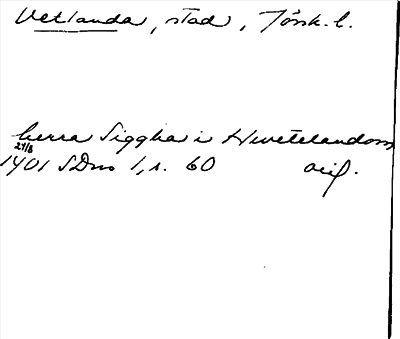 Vetlanda, stad, Jönk. l.
herra Siggha i Hwetelandom
27/8
1401 SDns 1, s. 60 orig.